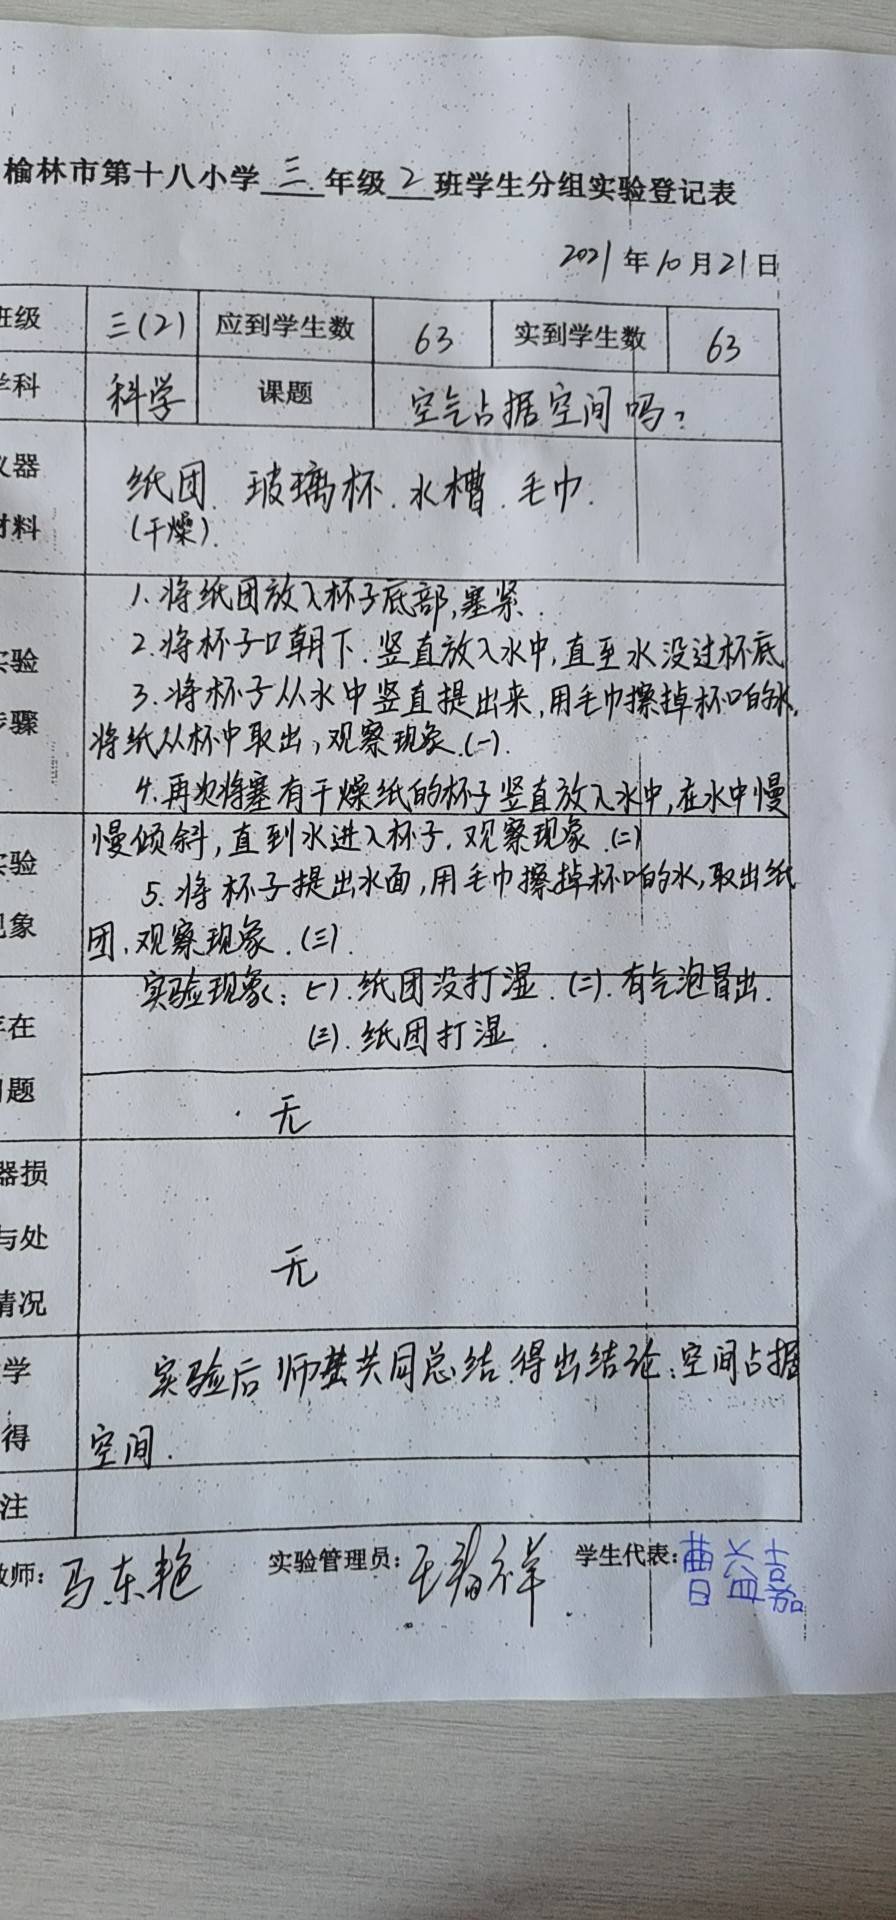 榆林市第十八小学三年级2班学生分组实验登记表
2021年10月21日
班级 三(2) 应到学生数 63 实到学生数 63
学科 科学 课题 空气占据空间吗?
仪器 纸团. 玻璃杯. 水槽. 毛巾.
材料 (干燥).
1. 将纸团放入杯子底部,塞紧.
2. 将杯子口朝下. 竖直放入水中,直至水没过杯底
实验
3. 将杯子从水中竖直提出来,用毛巾擦掉杯口的水,
步骤
将纸从杯中取出,观察现象.(一).
4. 再次将塞有干燥纸的杯子竖直放入水中,在水中慢
慢倾斜,直到水进入杯子. 观察现象.(二)
实验
5. 将杯子提出水面,用毛巾擦掉杯口的水,取出纸
现象
团,观察现象.(三).
实验现象: (一). 纸团没打湿. (二). 有气泡冒出.
存在
(三). 纸团打湿.
问题
无
器损
与处
无
情况
学 实验后师生共同总结.得出结论:空间占据
得 空间.
注
教师: 马东艳 实验管理员: 学生代表: 曹益嘉